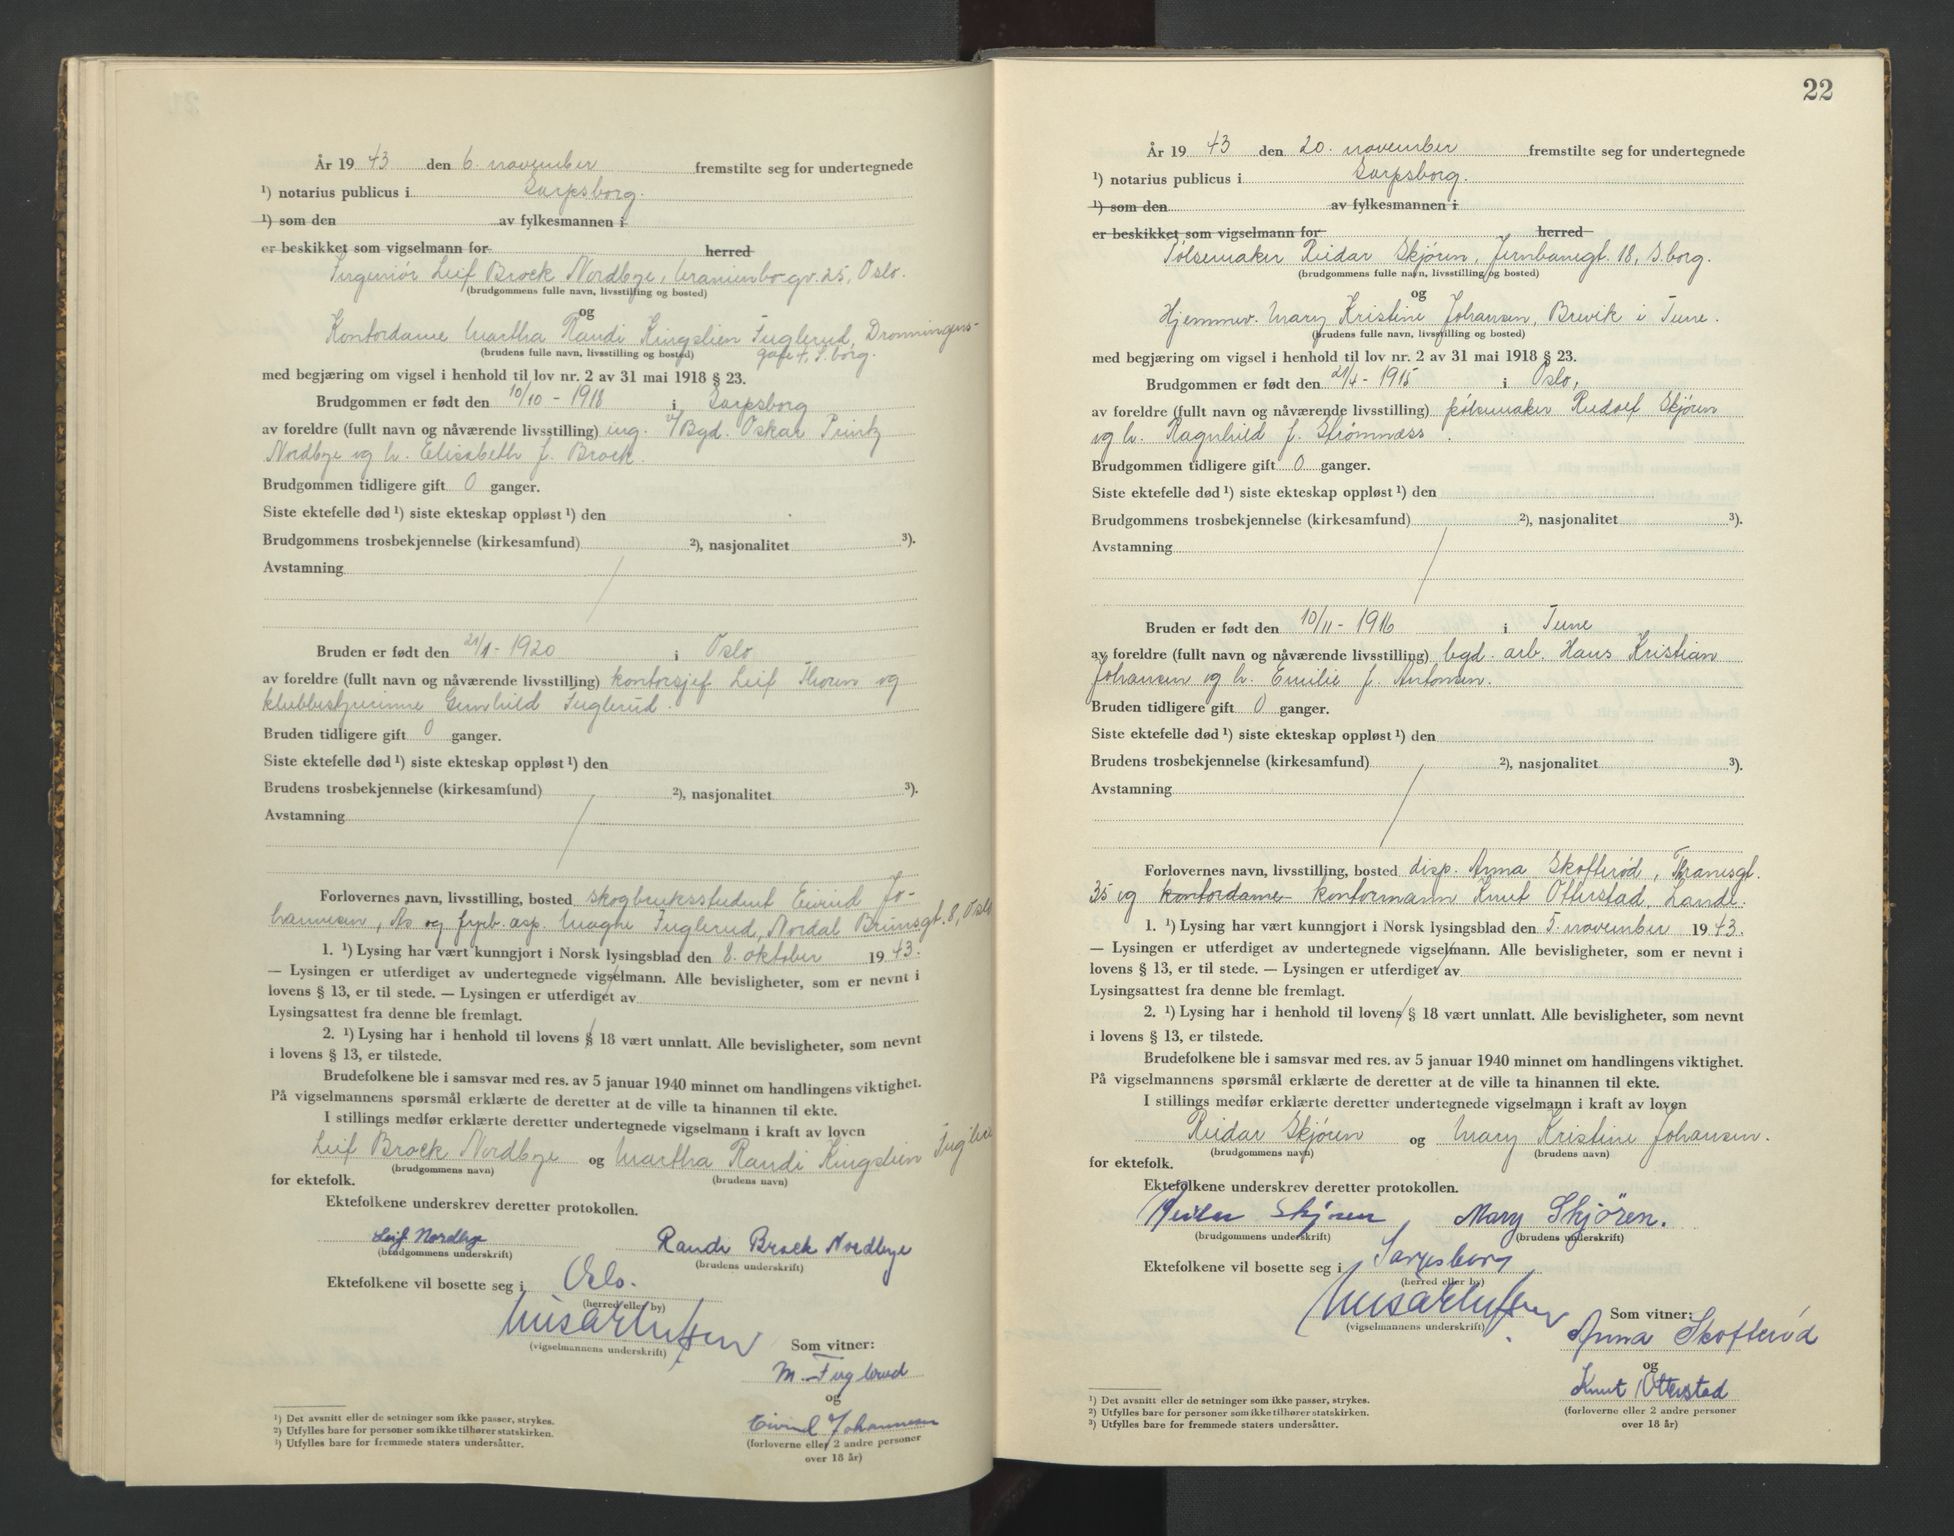 År 19 43 den 6. november fremstilte seg for undertegnede
¹) notarius publicus i Sarpsborg.
¹) som den av fylkesmannen i
er beskikket som vigselmann for herred
Ingeniör Leif Brock Nordbye, Uranienborgv. 25, Oslo.
(brudgommens fulle navn, livsstilling og bosted)
og
Kontordame Martha Randi Kingslien Fuglerud, Dronningens-
(brudens fulle navn, livsstilling og bosted) gate 4, S.borg.
med begjæring om vigsel i henhold til lov nr. 2 av 31 mai 1918 § 23.
Brudgommen er født den 10/10 - 1918 i Sarpsborg
av foreldre (fullt navn og nåværende livsstilling) ing. v/Bgd. Oskar Printz
Nordbye og h. Elisabeth f. Brock.
Brudgommen tidligere gift 0 ganger.
Siste ektefelle død ¹) siste ekteskap oppløst ¹) den
Brudgommens trosbekjennelse (kirkesamfund) ²), nasjonalitet ³).
Avstamning
Bruden er født den 21/1 - 1920 i Oslo
av foreldre (fullt navn og nåværende livsstilling) kontorsjef Leif Thoren og
klubbestyrinne Gunhild Fuglerud.
Bruden tidligere gift 0 ganger.
Siste ektefelle død ¹) siste ekteskap oppløst ¹) den
Brudens trosbekjennelse (kirkesamfund) ²), nasjonalitet ³).
Avstamning
Forlovernes navn, livsstilling, bosted skogbruksstudent Eivind Jo-
hannesen, Ås og fysb. asp. Maghe Fuglerud, Nordal Brunsgt. 8, Oslo
1. ¹) Lysing har vært kunngjort i Norsk lysingsblad den 8. oktober 19 43.
— Lysingen er utferdiget av undertegnede vigselmann. Alle bevisligheter, som er nevnt i
lovens § 13, er til stede. — Lysingen er utferdiget av
Lysingsattest fra denne ble fremlagt.
2. ¹) Lysing har i henhold til lovens § 18 vært unnlatt. Alle bevisligheter, som nevnt
i lovens § 13, er tilstede.
Brudefolkene ble i samsvar med res. av 5 januar 1940 minnet om handlingens viktighet.
På vigselmannens spørsmål erklærte de deretter at de ville ta hinannen til ekte.
I stillings medfør erklærte deretter undertegnede vigselmann i kraft av loven
Leif Brock Nordbye og Martha Randi Kingslien
(brudgommens navn) (brudens navn)
for ektefolk.
Ektefolkene underskrev deretter protokollen.
Leif Nordbye Randi Brock Nordbye
(brudgommens underskrift) (brudens underskrift)
Ektefolkene vil bosette seg i Oslo.
(herred eller by)
(vigselmannens underskrift) Som vitner:
M. Fuglerud
og
Eivind Johannesen
(forloverne eller 2 andre personer
over 18 år)
¹) Det avsnitt eller de setninger som ikke passer, strykes.
²) Utfylles bare for personer som ikke tilhører statskirken.
³) Utfylles bare for fremmede staters undersåtter.
22
År 19 43 den 20. november fremstilte seg for undertegnede
¹) notarius publicus i Sarpsborg.
¹) som den av fylkesmannen i
er beskikket som vigselmann for herred
Pølsemaker Reidar Skjøren, Jernbanegt. 18, S.borg.
(brudgommens fulle navn, livsstilling og bosted)
og
Hjemmev. Mary Kristine Johansen, Brevik i Tune.
(brudens fulle navn, livsstilling og bosted)
med begjæring om vigsel i henhold til lov nr. 2 av 31 mai 1918 § 23.
Brudgommen er født den 21/4 - 1915 i Oslo,
av foreldre (fullt navn og nåværende livsstilling) pølsemaker Rudolf Skjøren
og h. Ragnhild f. Strømnæss.
Brudgommen tidligere gift 0 ganger.
Siste ektefelle død ¹) siste ekteskap oppløst ¹) den
Brudgommens trosbekjennelse (kirkesamfund) ²), nasjonalitet ³).
Avstamning
Bruden er født den 10/11 - 1916 i Tune
av foreldre (fullt navn og nåværende livsstilling) bgd. arb. Hans Kristian
Johansen og h. Emilie f. Antonsen.
Bruden tidligere gift 0 ganger.
Siste ektefelle død ¹) siste ekteskap oppløst ¹) den
Brudens trosbekjennelse (kirkesamfund) ²), nasjonalitet ³).
Avstamning
Forlovernes navn, livsstilling, bosted disp. Anna Skofterød, Thranesgt.
35 og kontordame kontormann Knut Otterstad, Lande.
1. ¹) Lysing har vært kunngjort i Norsk lysingsblad den 5. november 19 43.
— Lysingen er utferdiget av undertegnede vigselmann. Alle bevisligheter, som er nevnt i
lovens § 13, er til stede. — Lysingen er utferdiget av
Lysingsattest fra denne ble fremlagt.
2. ¹) Lysing har i henhold til lovens § 18 vært unnlatt. Alle bevisligheter, som nevnt
i lovens § 13, er tilstede.
Brudefolkene ble i samsvar med res. av 5 januar 1940 minnet om handlingens viktighet.
På vigselmannens spørsmål erklærte de deretter at de ville ta hinannen til ekte.
I stillings medfør erklærte deretter undertegnede vigselmann i kraft av loven
Reidar Skjøren og Mary Kristine Johansen.
(brudgommens navn) (brudens navn)
for ektefolk.
Ektefolkene underskrev deretter protokollen.
Reidar Skjøren, Mary Skjören.
(brudgommens underskrift) (brudens underskrift)
Ektefolkene vil bosette seg i Sarpsborg
(herred eller by)
Som vitner:
(vigselmannens underskrift)
Anna Skofterød
og
Knut Otterstad
(forloverne eller 2 andre personer
over 18 år)
¹) Det avsnitt eller de setninger som ikke passer, strykes.
²) Utfylles bare for personer som ikke tilhører statskirken.
³) Utfylles bare for fremmede staters undersåtter.